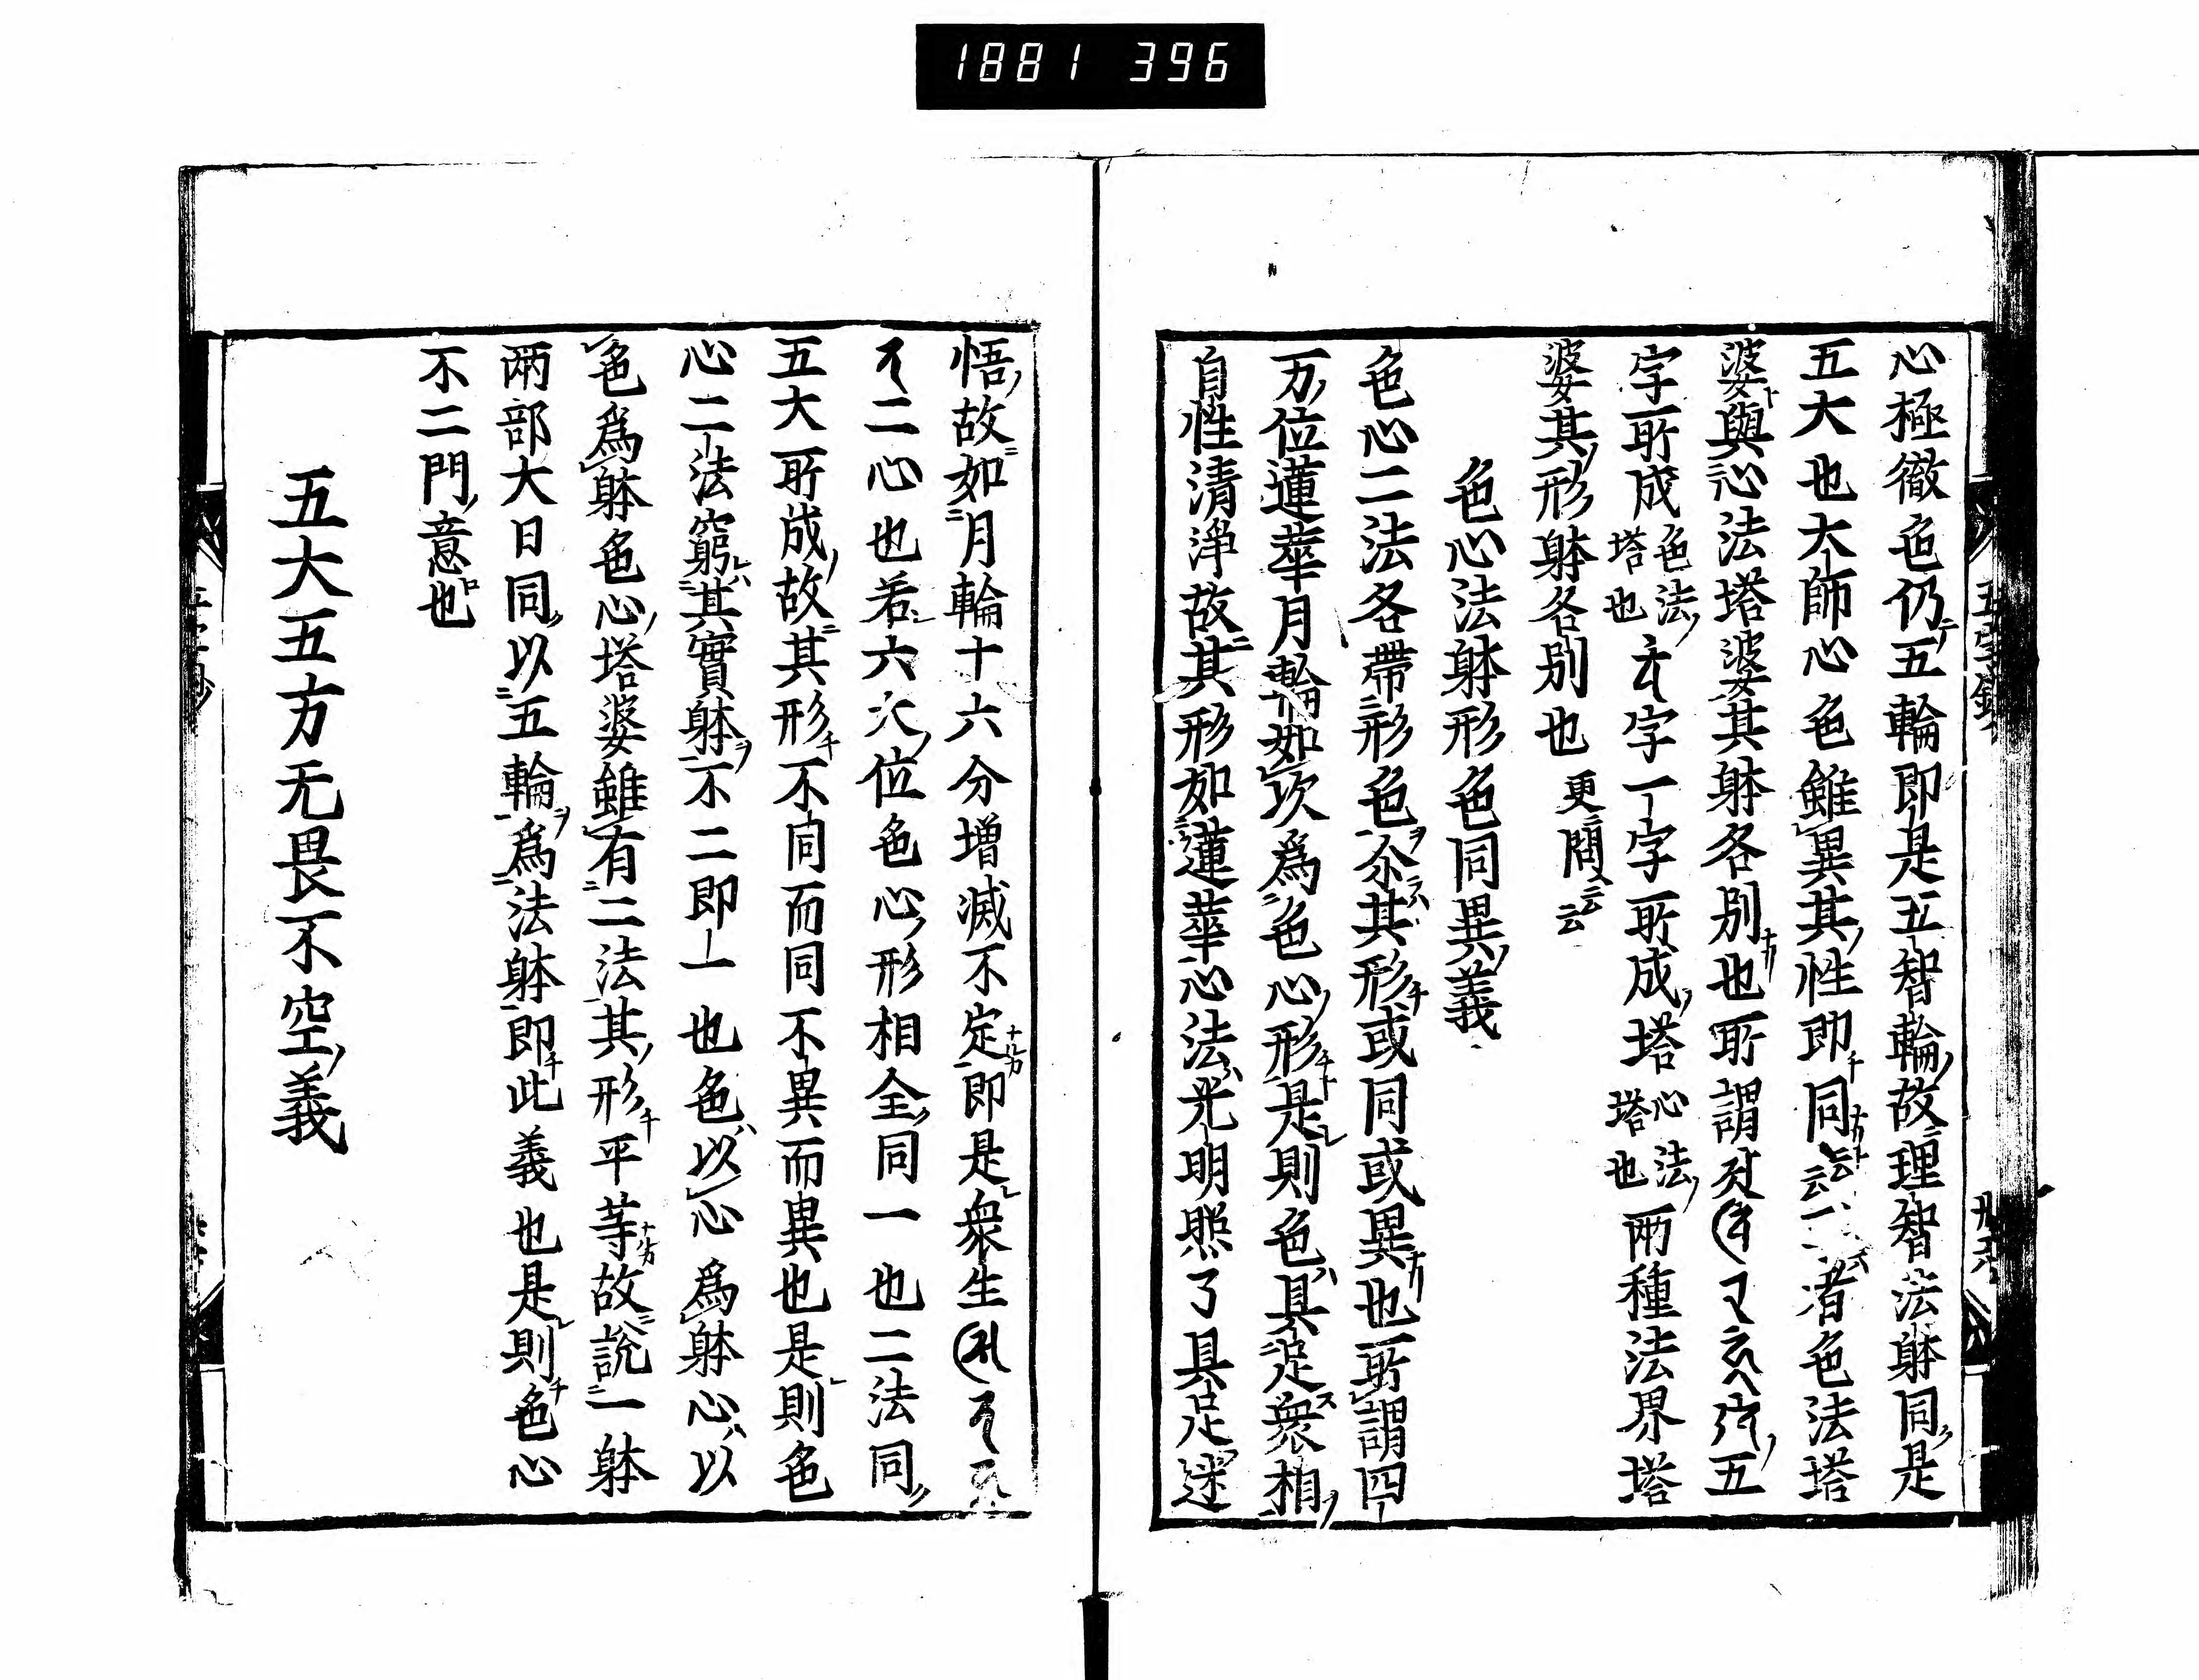 1881 396
心極徹色仍五輪即是五智輪故理智法躰同是
五大也大師心色雖異其性即同云云一者色法塔
婆與心法塔婆其躰各別也所謂 五
字所成色法塔也 字一字所成塔心法塔也兩種法界塔
婆其形躰各別也更問云云
色心法躰形色同異義
色心二法各帶形色尒其形或同或異也所謂四
万位蓮華月輪如次爲色心形是則色具足衆相
自性清淨故其形如蓮華心法光明照了具足迷
悟故如月輪十六分増減不定即是衆生
二心也若六大位色心形相全同一也二法同
五大所成故其形不同而同不異而異也是則色
心二法窮其實躰不二即一也色以心爲躰心以
色爲躰色心塔婆雖有二法其形平等故説一躰
兩部大日同以五輪爲法躰即此義也是則色心
不二門意也
五大五方无畏不空義